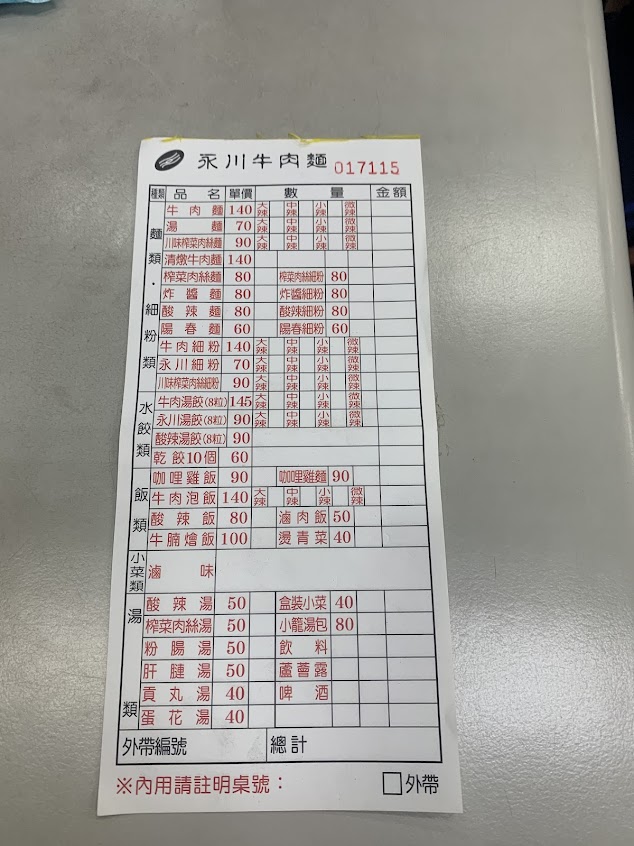 永川牛肉麵 017115
種類 品名 單價 數量 金額
麵類·細粉類
牛肉麵 140 大辣 中辣 小辣 微辣
湯麵 70 大辣 中辣 小辣 微辣
川味榨菜肉絲麵 90 大辣 中辣 小辣 微辣
清燉牛肉麵 140
榨菜肉絲麵 80 榨菜肉絲細粉 80
炸醬麵 80 炸醬細粉 80
酸辣麵 80 酸辣細粉 80
陽春麵 60 陽春細粉 60
牛肉細粉 140 大辣 中辣 小辣 微辣
永川細粉 70 大辣 中辣 小辣 微辣
川味榨菜肉絲細粉 90 大辣 中辣 小辣 微辣
水餃類
牛肉湯餃(8粒) 145 大辣 中辣 小辣 微辣
永川湯餃(8粒) 90 大辣 中辣 小辣 微辣
酸辣湯餃(8粒) 90
乾餃10個 60
飯類
咖哩雞飯 90 咖哩雞麵 90
牛肉泡飯 140 大辣 中辣 小辣 微辣
酸辣飯 80 滷肉飯 50
牛腩燴飯 100 燙青菜 40
小菜類
滷味
湯類
酸辣湯 50 盒裝小菜 40
榨菜肉絲湯 50 小籠湯包 80
粉腸湯 50 飲料
肝腱湯 50 蘆薈露
貢丸湯 40 啤酒
蛋花湯 40
外帶編號 總計
※內用請註明桌號： 外帶